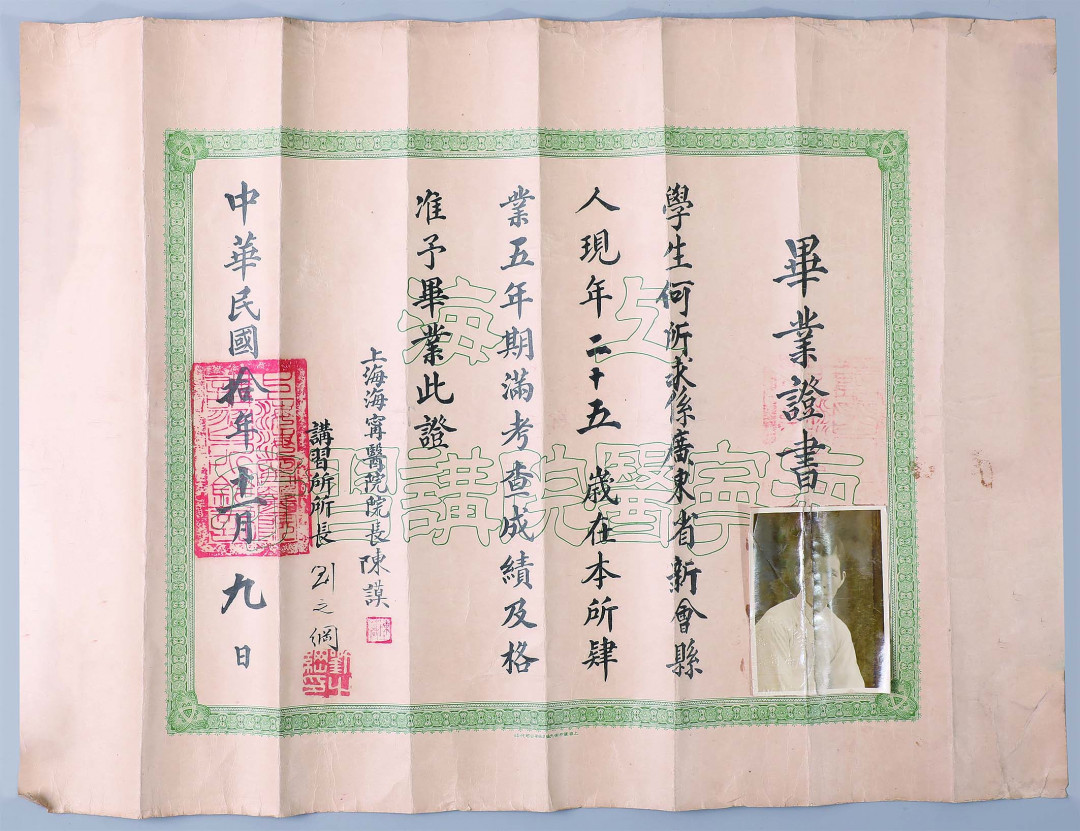 畢業證書
學生何所求係廣東省新會縣
人現年二十五歲在本所肄
業五年期滿考查成績及格
准予畢業此證
上海海寧醫院院長陳謨
講習所所長劉之綱
中華民國拾年十一月九日
上海
海寧醫院講習所